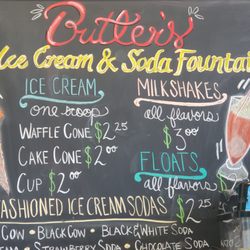 Butter's
Ice Cream & Soda Fountai
ICE CREAM
one scoop
WAFFLE CONE $2.25
CAKE CONE $2.00
CUP $2.00
MILKSHAKES
all flavors
$3.00
FLOATS
all flavors
ASHIONED ICE CREAM SODAS $
COW • BLACK COW • BLACK & WHITE SODA
EAM • STRAWBERRY SODA • CHOCOLATE SODA